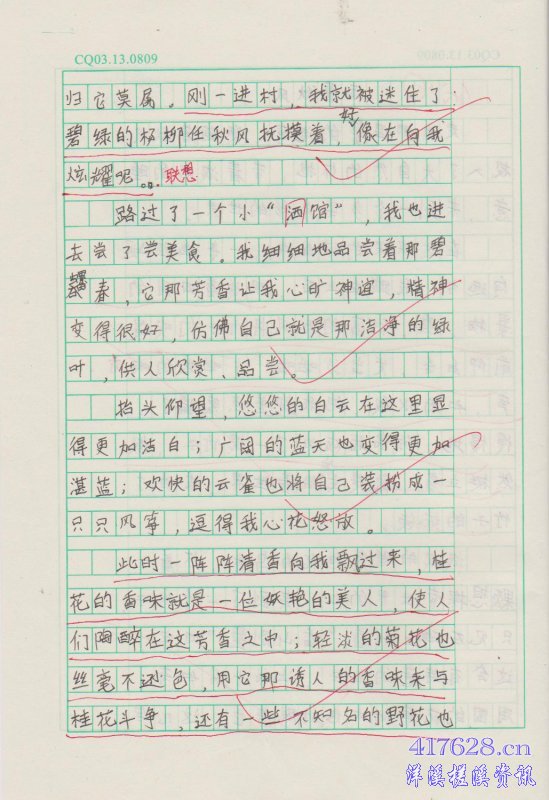 CQ03.13.0809
归它莫属。刚一进村，我就被迷住了
碧绿的杨柳任秋风抚摸着，好像在向我
炫耀呢。联想
路过了一个小“酒馆”，我也进
去尝了尝美食。我细细地品尝着那碧
螺春，它那芳香让我心旷神谊，精神
变得很好，仿佛自己就是那洁净的绿
叶，供人欣赏、品尝。
抬头仰望，悠悠的白云在这里显
得更加洁白；广阔的蓝天也变得更加
湛蓝；欢快的云雀也将自己装捞成一
只只风筝，逗得我心花怒放。
此时一阵阵清香向我飘过来，桂
花的香味就是一位妖艳的美人，使人
们陶醉在这芳香之中；轻淡的菊花也
丝毫不逊色，用它那诱人的香味来与
桂花斗争，还有一些不知名的野花也
417628.cn
洋溪槎溪资讯